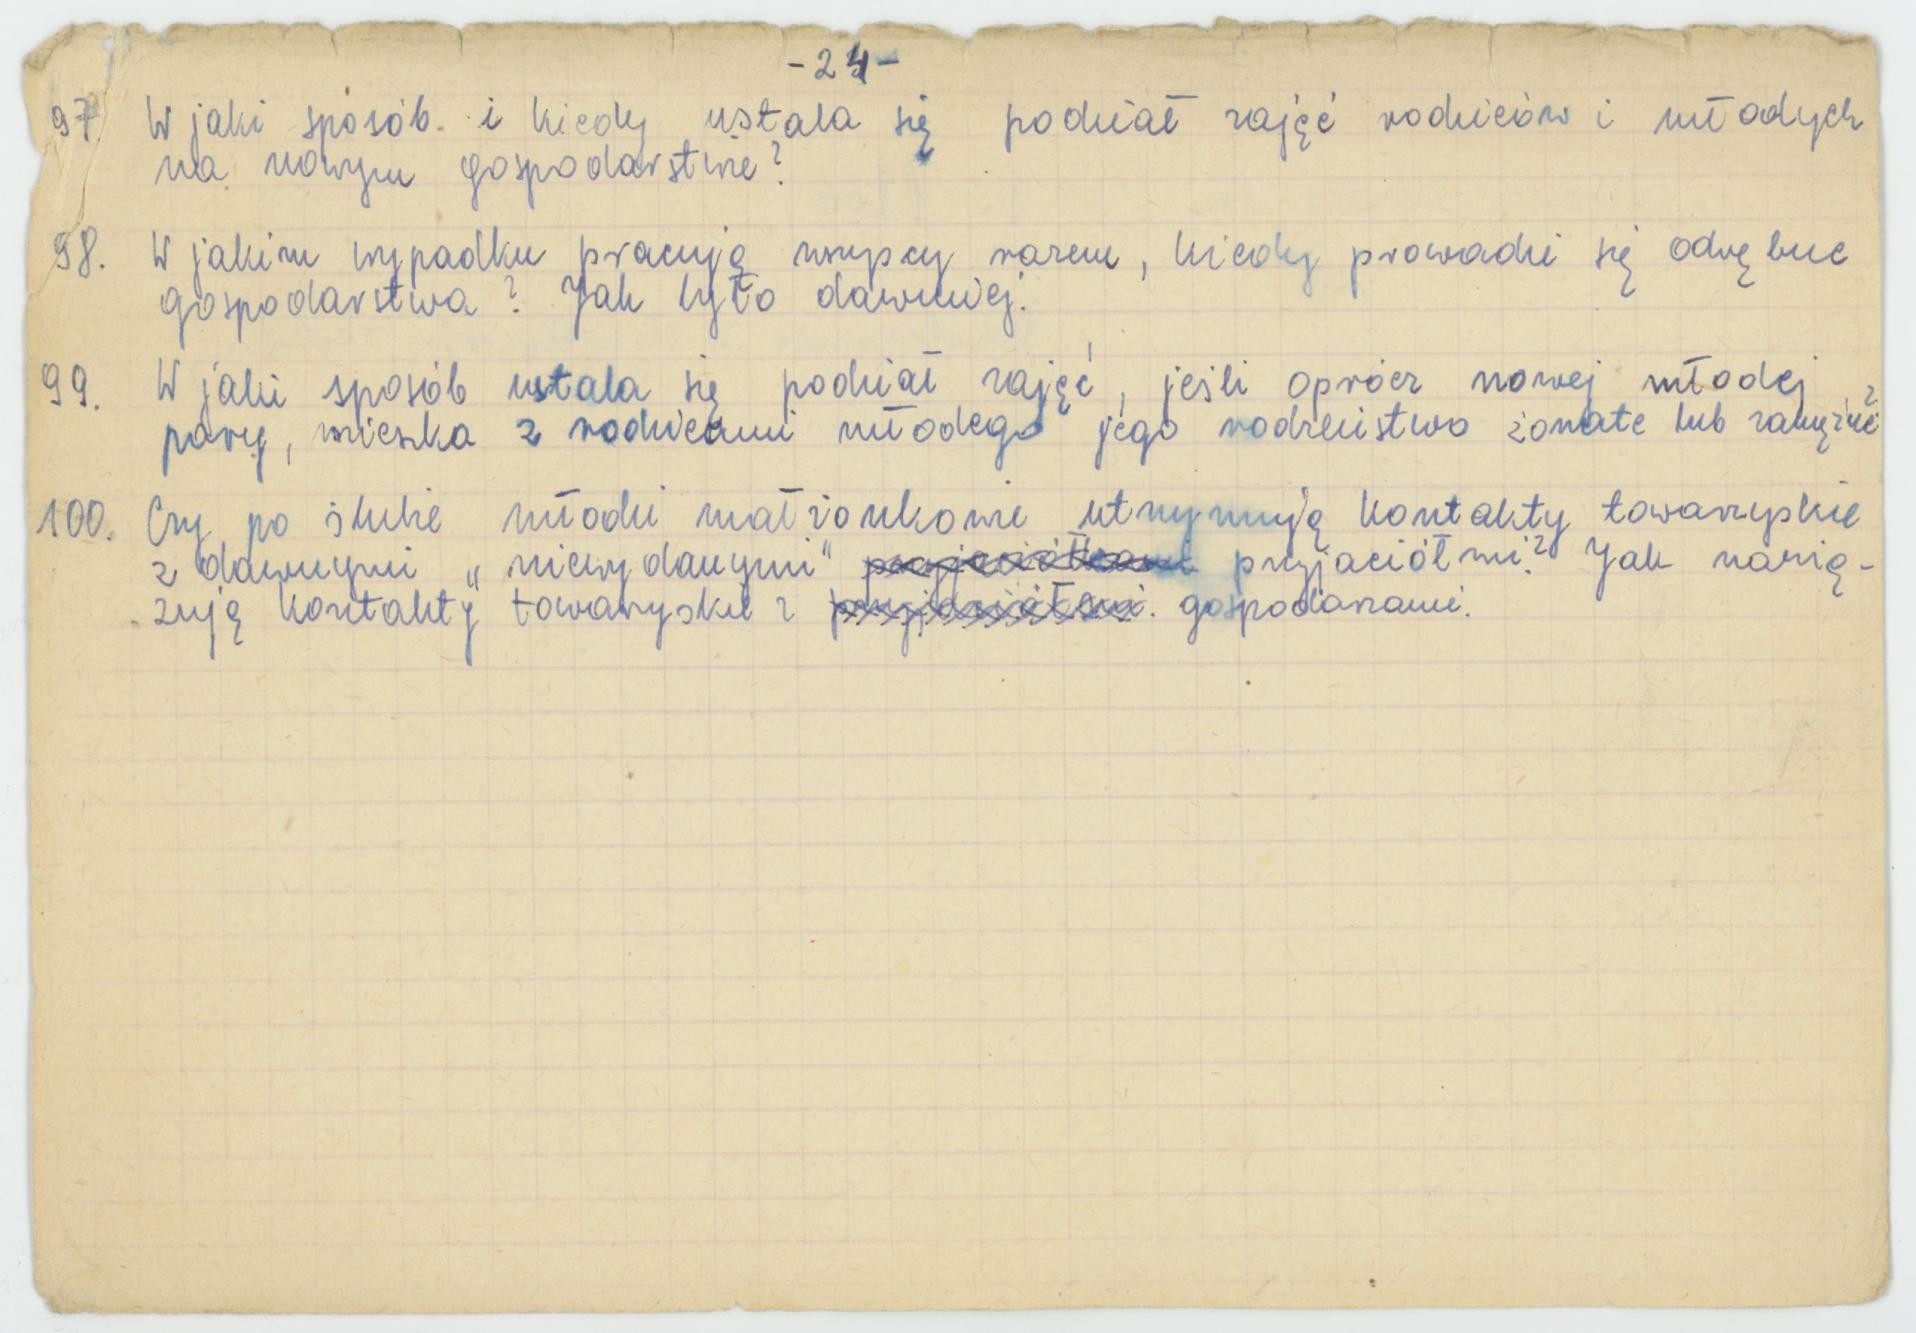 - 24 -
97. W jaki sposób i kiedy ustala się podział zajęć rodziców i młodych
na nowym gospodarstwie?
98. W jakim wypadku pracują wszyscy razem, kiedy prowadzi się odrębne
gospodarstwa? Jak było dawniej.
99. W jaki sposób ustala się podział zajęć, jeśli oprócz nowej młodej
pary, mieszka z rodzicami młodego jego rodzeństwo żonate lub zamężne?
100. Czy po ślubie młodzi małżonkowie utrzymują kontakty towarzyskie
z dawnymi „niewydanymi" przyjaciółkami przyjaciółmi? Jak nawią-
zują kontakty towarzyskie z przyjaciółmi. gospodarzami.